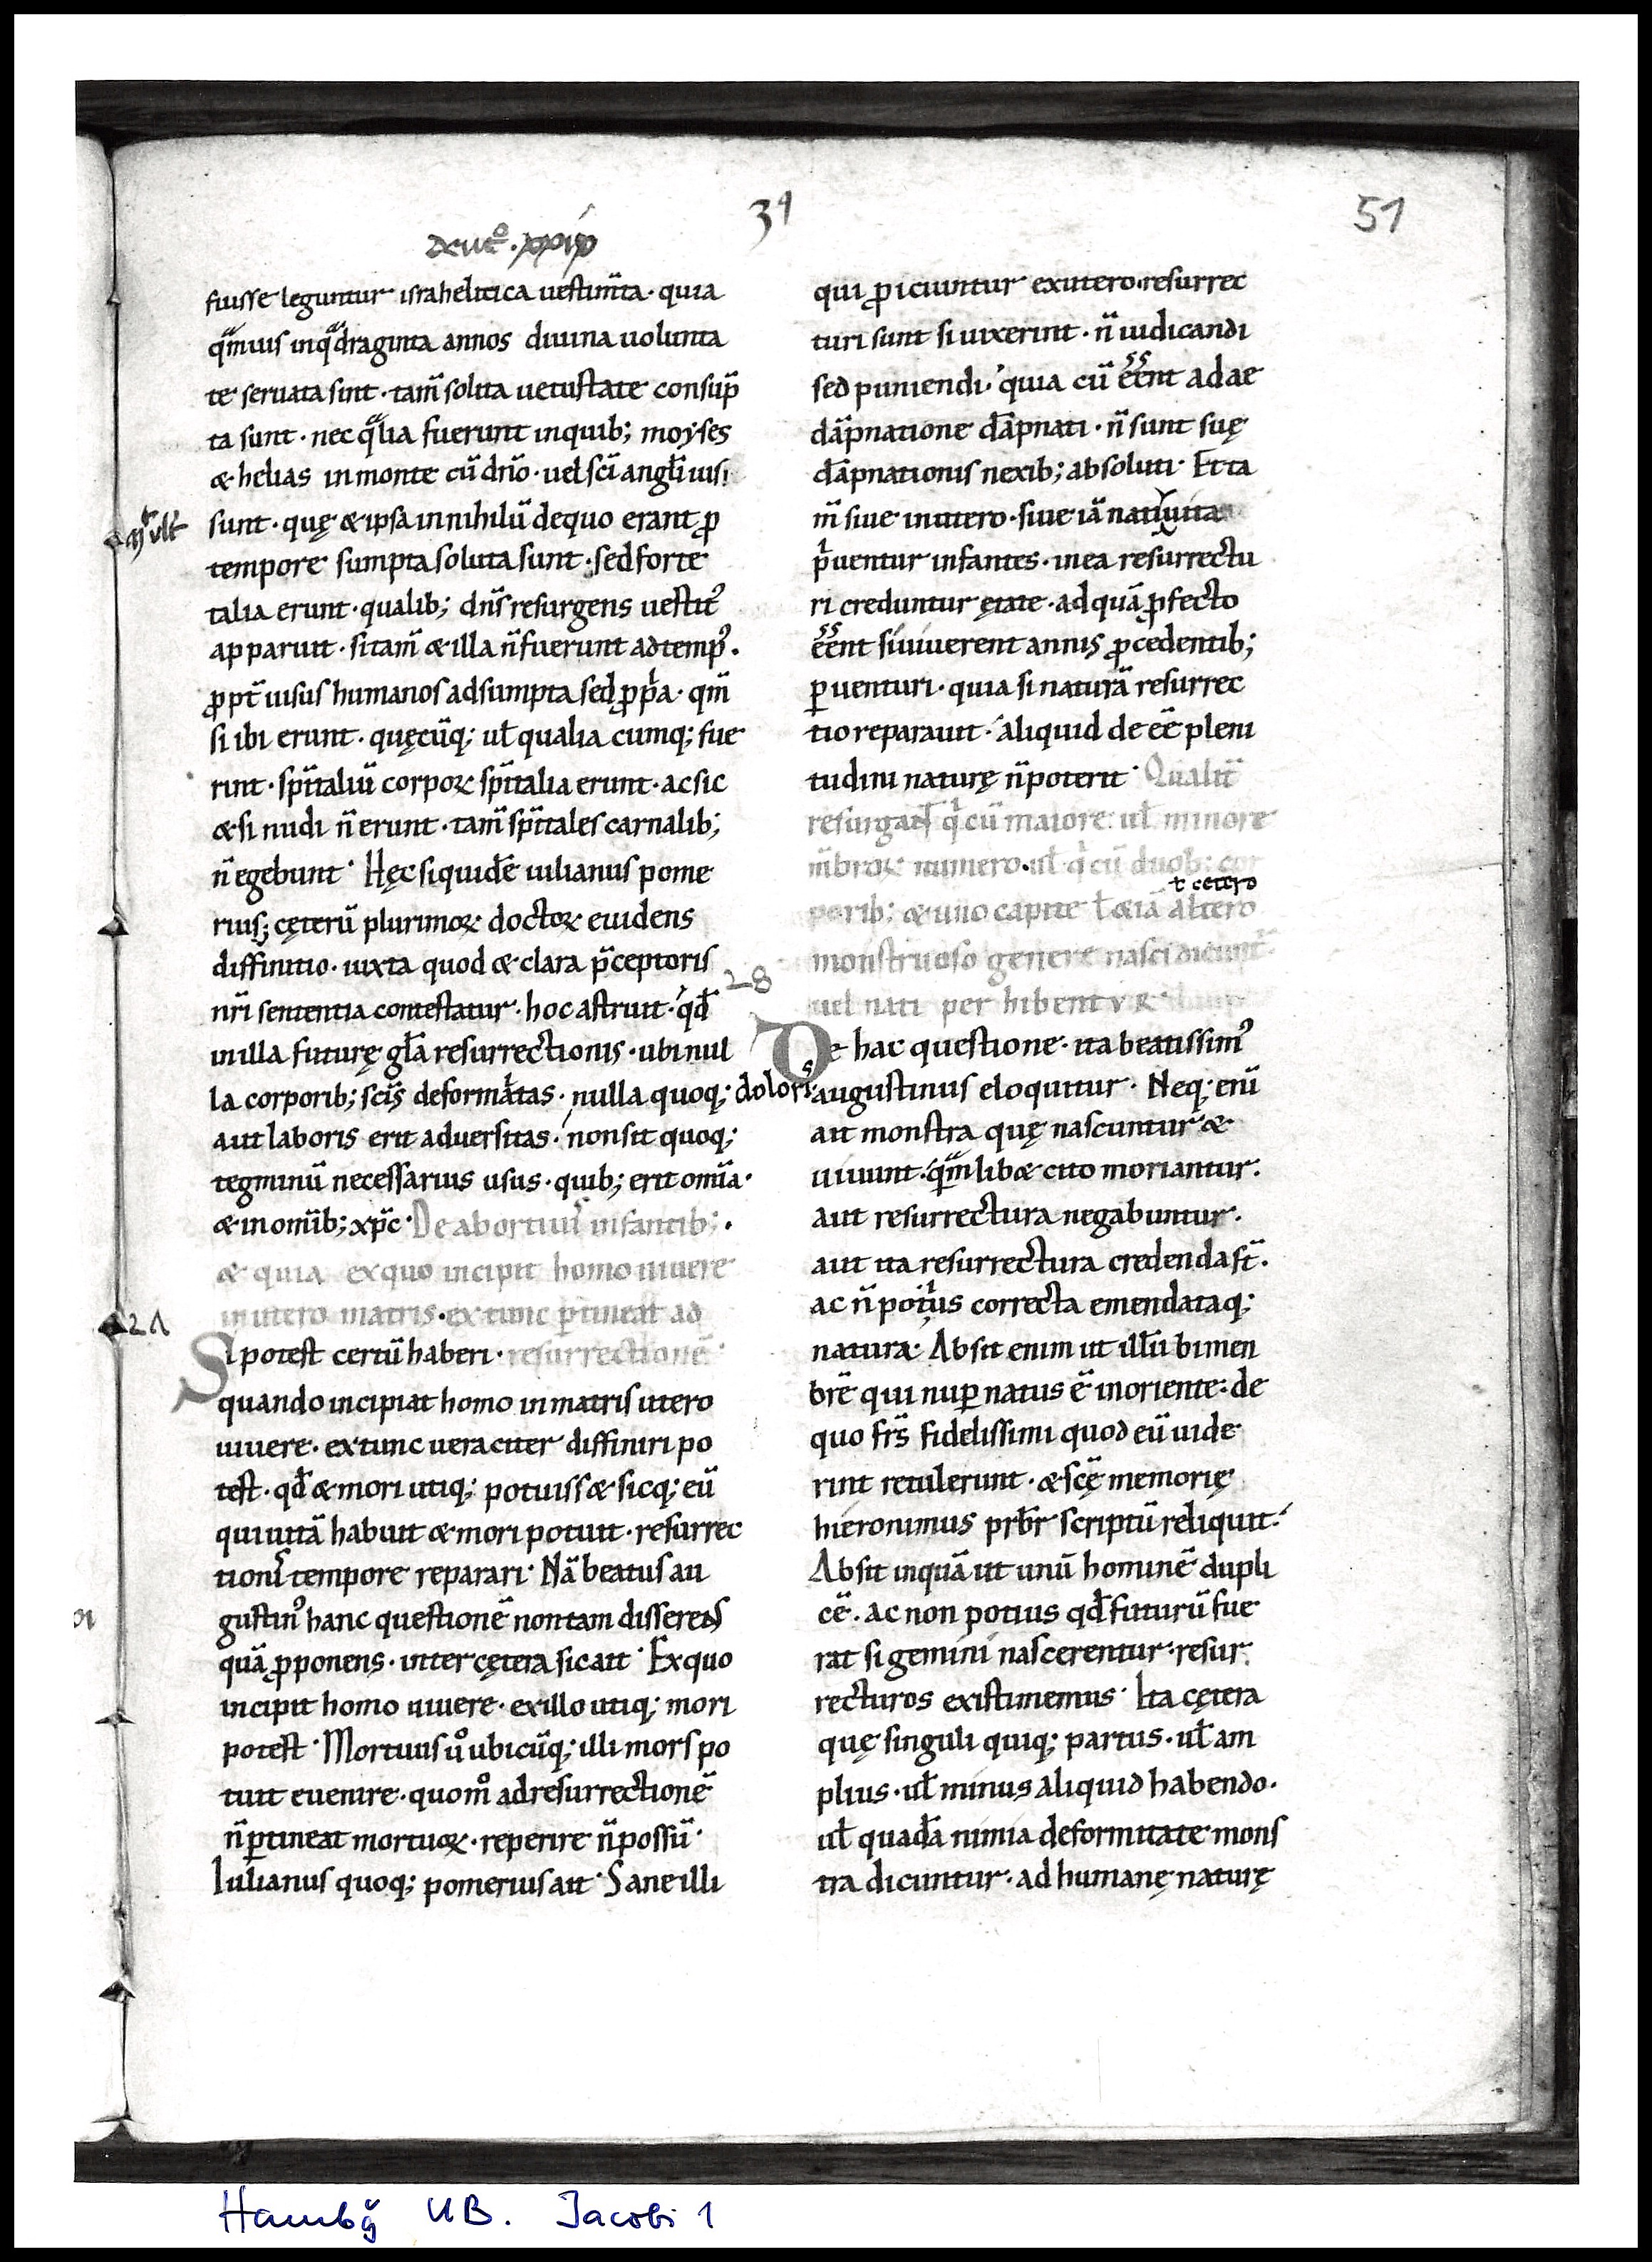 39
51
deut̄o . xxix
fuisse leguntur israhelitica uestim̄ta · quia
qͣmuis inqͣdraginta annos diuina uolunta
te seruata sint · tam̄ solita uetustate consūp
ta sunt · nec qͣlia fuerunt inquib; moyses
& helias in monte cū dn̄o · uel sc̄i angl̄i uisi
sunt · quę & ipsa in nihilū dequo erant ꝓ
tempore sumpta soluta sunt · sed forte
talia erunt · qualib; dn̄s resurgens uestitꝰ
apparuit · si tam̄ & illa n̄ fuerunt ad tempꝰ ·
ꝓpt̄ uisus humanos adsumpta sed ꝓpͥa · qm̄
si ibi erunt · quęcūq; ul̄ qualia cumq; fue
rint · sp̄italiū corpoꝝ sp̄italia erunt · ac sic
& si nudi n̄ erunt · tam̄ sp̄itales carnalib;
n̄ egebunt · Hęc siquidē iulianus pome
rius; cęterū plurimoꝝ doctoꝝ euidens
diffinitio · iuxta quod & clara p̄ceptoris
nr̄i sententia contestatur · hoc astruit · qd̄
in illa futurę gl̄a resurrectionis · ubi nul
la corporib; sc̄is deformitas · nulla quoq; doloris
aut laboris erit aduersitas · non sit quoq;
tegminū necessarius usus · quib; erit om̄ia ·
& in om̄ib; xp̄c · De abortiuis infantib; ·
& quia exquo incipit homo uiuere
in utero matris · ex tunc ꝑtineat ad
21
Si potest certū haberi · resurrectionē ·
quando incipiat homo in matris utero
uiuere · extunc ueraciter diffiniri po
test · qd̄ & mori utiq; potuiss& sicq; eū
qui uitā habuit & mori potuit · resurrec
tionis tempore reparari · Nā beatus au
gustinꝰ hanc questionē non tam disserens
quā ꝓponens · inter cętera sic ait · Exquo
incipit homo uiuere · exillo utiq; mori
potest · Mortuus uͦ ubicūq; illi mors po
tuit euenire · quomͦ ad resurrectionē
n̄ ꝑtineat mortuoꝝ · reperire n̄ possū ·
Iulianus quoq; pomerius ait · Sane illi
qui ꝓiciuntur exutero · resurrec
turi sunt si uixerint · n̄ iudicandi
sed puniendi · quia cū eēnt adae
dāpnatione dāpnati · n̄ sunt suę
dāpnationis nexib; absoluti · Et ta
m̄ siue in utero · siue iā nati uita
pͥuentur infantes · in ea resurrectu
ri creduntur ętate · ad quā ꝓfecto
eēnt si uiuerent annis ꝓcedentib;
ꝑuenturi · quia si naturā resurrec
tio reparauit · aliquid de eē pleni
tudini naturę n̄ poterit · Qualit̄
resurgant qͥ cū maiore ul̄ minore
m̄broꝝ numero · ul̄ qͥ cū duob; cor
ł cetero
porib; & uno capite ł &iā altero
monstruoso genere nasci dicunt̄
uel nati per hibentur
28
De hac questione · ita beatissimꝰ
augustinus eloquitur · Neq; enī
ait monstra quę nascuntur &
uiuunt · qͣmlib& cito moriantur ·
aut resurrectura negabuntur ·
aut ita resurrectura credenda st̄ ·
ac n̄ potius correcta emendataq;
natura · Absit enim ut illū bimen
brē qui nuꝑ natus ē in oriente · de
quo frs̄ fidelissimi quod eū uide
rint retulerunt · & scę̄ memorię
hieronimus prb̄r scriptū reliquit ·
Absit inquā ut unū hominē dupli
cē · ac non potius qd̄ futurū fue
rat si gemini nascerentur · resur
recturos existimemus · Ita cętera
quę singuli quiq; partus · ul̄ am
plius · ul̄ minus aliquid habendo ·
ul̄ quadā nimia deformitate mons
tra dicuntur · ad humanę naturę
Hambg UB. Jacobi 1